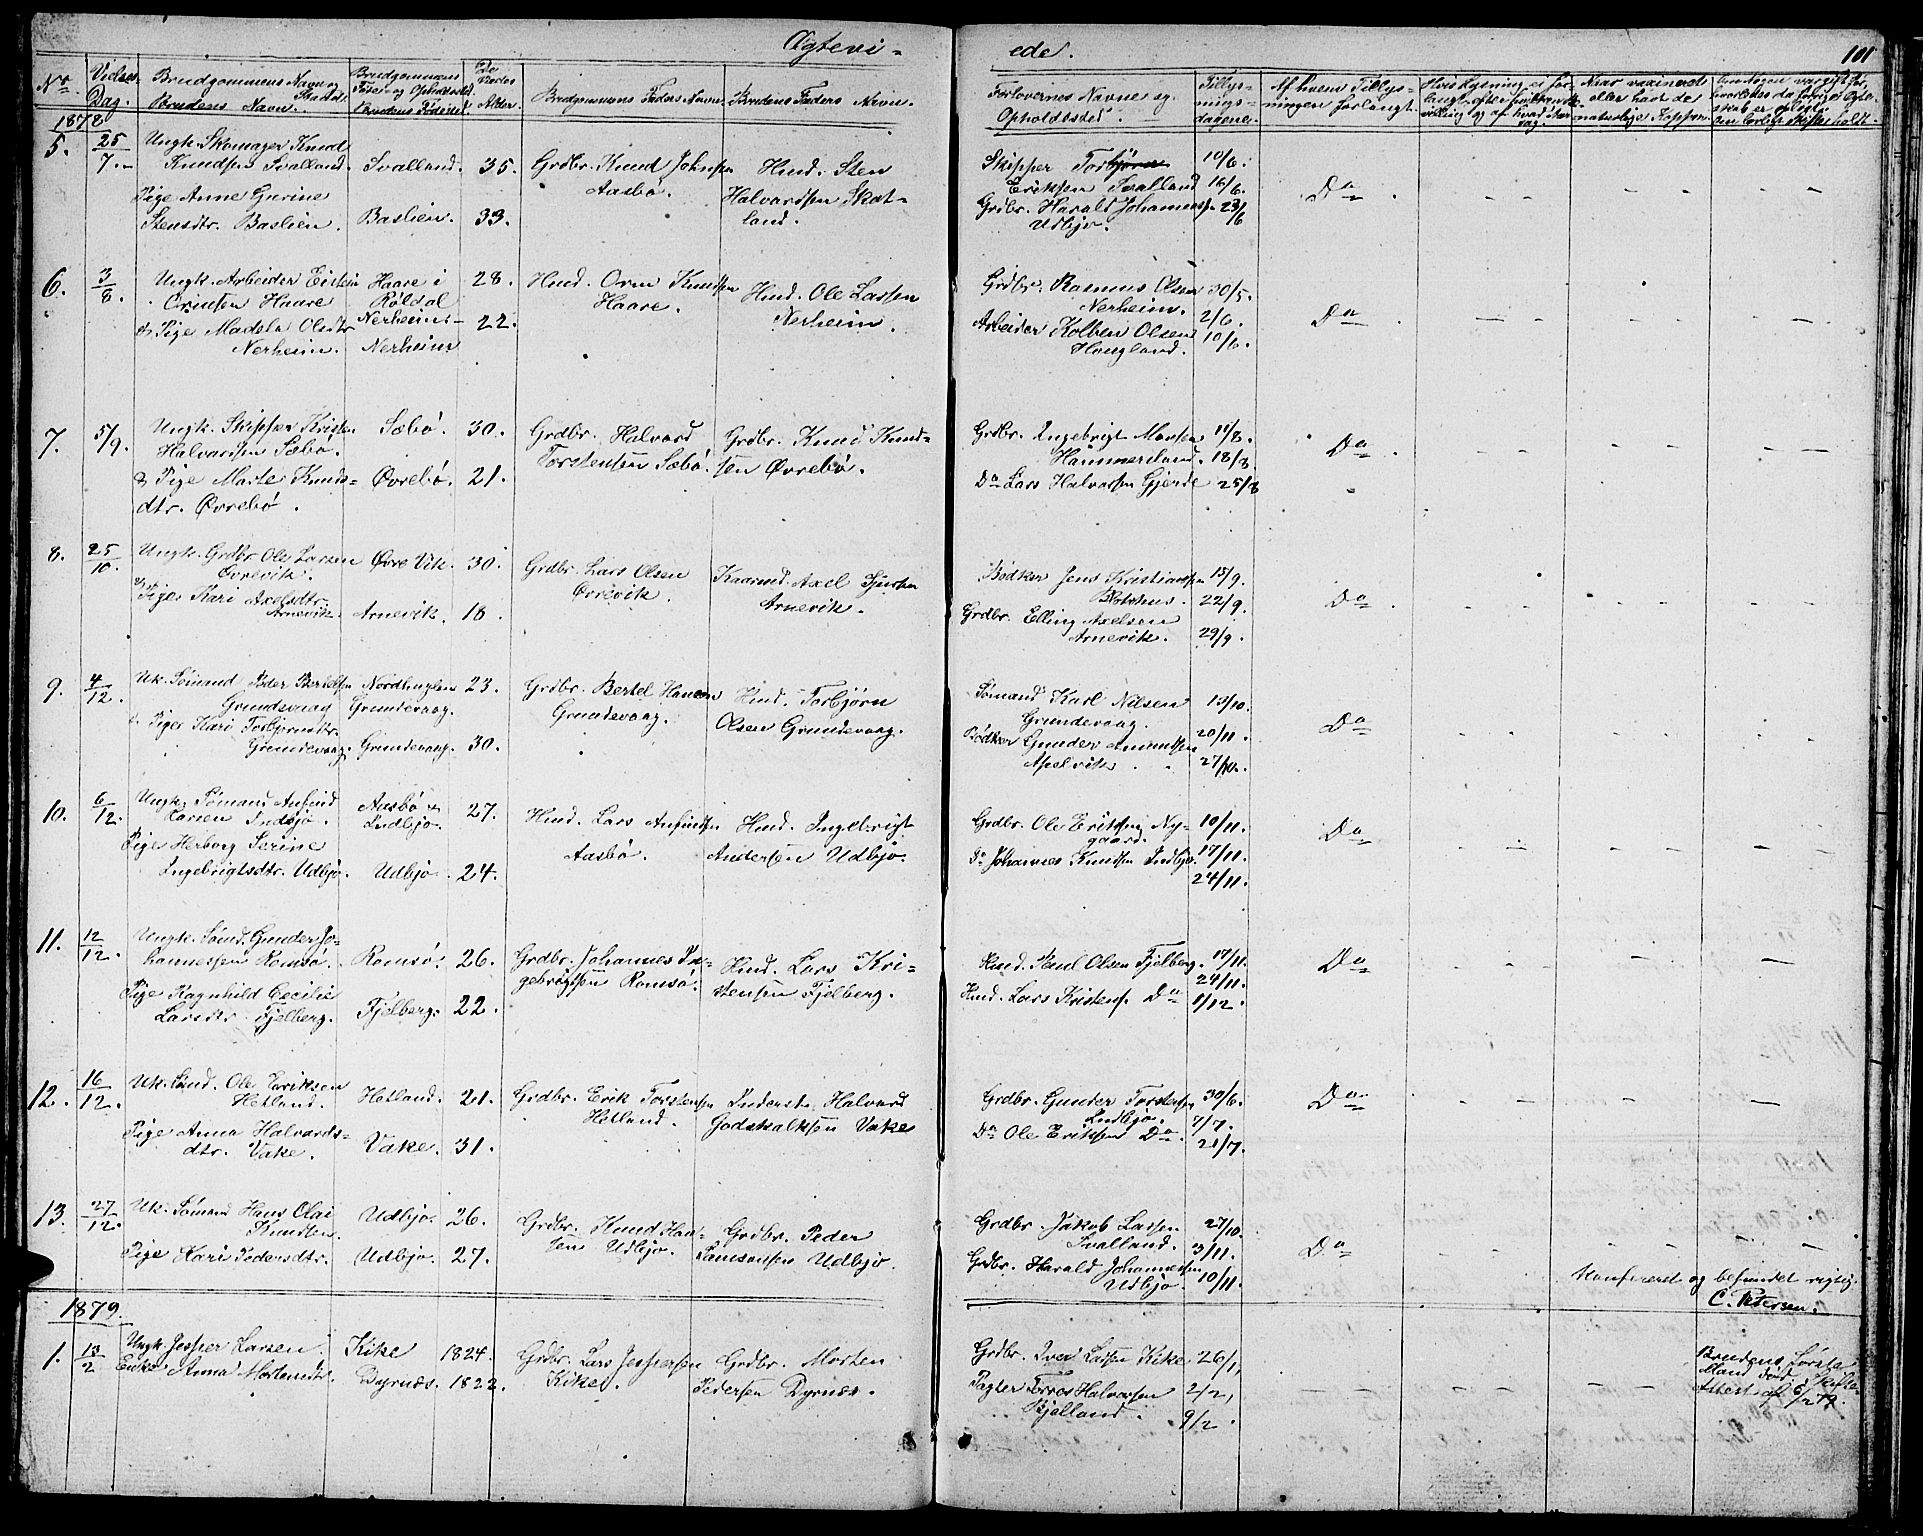 Ægtevi-
ede.
101
No
Vielses Dag.
Brudgommens Navn og Stand.
Brudens Navn.
Brudgommens Føde- og Opholdssted.
Brudens Fødested.
De Viedes Alder.
Brudgommens Faders Navn.
Brudens Faders Navn.
Forlovernes Navne og
Opholdssted.
Tillys-
nings-
dagene.
Af hvem Tillys-
ningen forlangt.
1878
5.
25/7.
Ungk. Skomager Knud
Knudsen Svalland.
Pige Anne Gurine
Stensdtr. Baslien.
Svalland.
Baslien.
35.
33.
Grdbr. Knud Johnsen
Aasbø.
Hmd. Sten
Halvardsen Skat-
land.
Skipper Torbjørn
Eriksen Svalland
Grdbr. Harald Johannes.
Udbjo.
10/6.
16/6.
23/6
Do
6.
3/8.
Ungk. Arbeider Eistein
Ormsen Haare
& Pige Madela Olsdtr
Nerheim.
Haare i
Røldal
Nerheim
Nerheim
28.
22.
Hmd. Orm Knudsen
Haare.
Hmd. Ole Larsen
Nerheim.
Grdbr. Rasmus Olsen
Nerheim.
Arbeider Kolben Olsen
Haugland.
30/5.
2/6.
10/6.
Do
7.
5/9.
Ungk. Skipper Kristen
Halvardsen Sæbø.
& Pige Marte Knuds-
dtr. Øvrebø.
Sæbø.
Øvrebø.
30.
21.
Grdbr. Halvard
Torstensen Sæbø.
Grdbr. Knud Knud-
sen Øvrebø.
Grdbr. Ingebrigt Monsen
Hammersland.
Do Lars Halvorsen Gjerde
11/8.
18/8.
25/8
Do
8.
25/10.
Ungk. Grdbr Ole Larsen
Øvrevik.
& Pige Kari Axelsdtr.
Arnevik.
Øvre Vik.
Arnevik.
30.
18.
Grdbr. Lars Olsen
Øvrevik.
Kaarmd. Axel Sjursen
Arnevik.
Bødker Jens Kristiansen
Grdbr. Elling Axelsen
Arnevik.
15/9.
22/9.
29/9.
Do
9.
4/12.
Uk. Sømand Peder Bertelsen
Grundevaag
& Pige Kari Torbjørnsdtr.
Grundevaag.
Nordhuglen
Grundevaag.
Grundevaag.
23.
30.
Grdbr. Bertel Hansen
Grundevaag.
Hmd. Torbjørn
Olsen Grundevaag.
Sømand Karl Nilsen
Grundevaag.
Bødker Gunder Amundsen
Apelvik
13/10.
20/11.
27/10.
Do
10.
6/12.
Ungk. Sømand Anfind
Larsen Indbjo.
Pige Herborg Serine
Ingebrigtsdtr. Udbjo.
Aasbø
Indbjo.
Udbjo
27.
24.
Hmd. Lars Anfindsen
Aasbø.
Hmd. Ingebrigt
Andersen Udbjo.
Grdbr. Ole Eriksen Ny-
gaard.
Do Johannes Knudsen Indbjo.
10/11.
17/11.
24/11.
Do
11.
12/12.
Ungk. Sømd. Gunder Jo-
hannessen Romsø.
Pige Ragnhild Cecilie
Larsdtr Fjelberg.
Romsø.
Fjelberg.
26.
22.
Grdbr. Johannes In-
gebrigtsen Romsø.
Hmd. Lars Kri-
stensen Fjelberg.
Hmd. Paul Olsen Fjelberg.
Hmd. Lars Kristens. Do
17/11.
24/11.
1/12.
Do
12.
16/12.
Uk. Sømd. Ole Eriksen
Hetland.
Pige Anna Halvards-
dtr. Vake.
Hetland.
Vake.
21.
31.
Grdbr. Erik Torstensen
Hetland.
Inderst. Halvard
Godskalksen Vake
Grdbr. Gunder Torstensen
Indbjo.
Do Ole Eriksen Do.
30/6.
7/7.
21/7.
Do
13.
27/12.
Uk. Sømand Hans Olai
Knudsen.
Pige Kari Pedersdtr.
Udbjo.
Udbjo.
26.
27.
Grdbr. Knud Han-
sen Udbjo.
Grdbr. Peder
Samsonsen Udbjo.
Grdbr. Jakob Larsen
Svalland.
Grdbr. Harald Johannessen
Udbjo.
27/10.
3/11.
10/11.
Do
Konfereret og befundet rigtig.
C. Petersen.
1879.
1.
13/2
Ungk. Jesper Larsen.
Enke Anna Mortensdtr.
Kike
Dyrnæs.
1824.
1822.
Grdbr. Lars Jespersen
Kike.
Grdbr. Morten
Pedersen Dyrnæs.
Grdbr. Iver Larsen Kike
Pagter Torres Halvorsen
Bjelland.
26/1,
2/2,
9/2.
Brudens første
Mand død Skifte
Attest af 6/2 79.